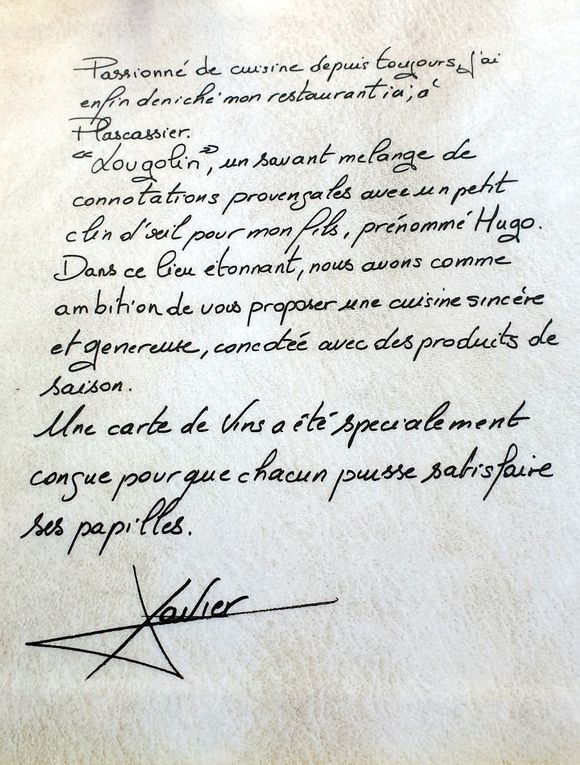 Passionné de cuisine depuis toujours, j'ai
enfin deniché mon restaurant ici, à
Plascassier.
"Lougolin", un savant melange de
connotations provençales avec un petit
clin d'œil pour mon fils, prénommé Hugo.
Dans ce lieu étonnant, nous avons comme
ambition de vous proposer une cuisine sincère
et genereuse, concotée avec des produits de
saison.
Une carte de Vins a été specialement
conçue pour que chacun puisse satisfaire
ses papilles.
Xavier